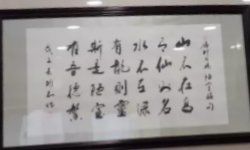 山不在高
有仙則名
水不在深
有龍則靈
斯是陋室
惟吾德馨